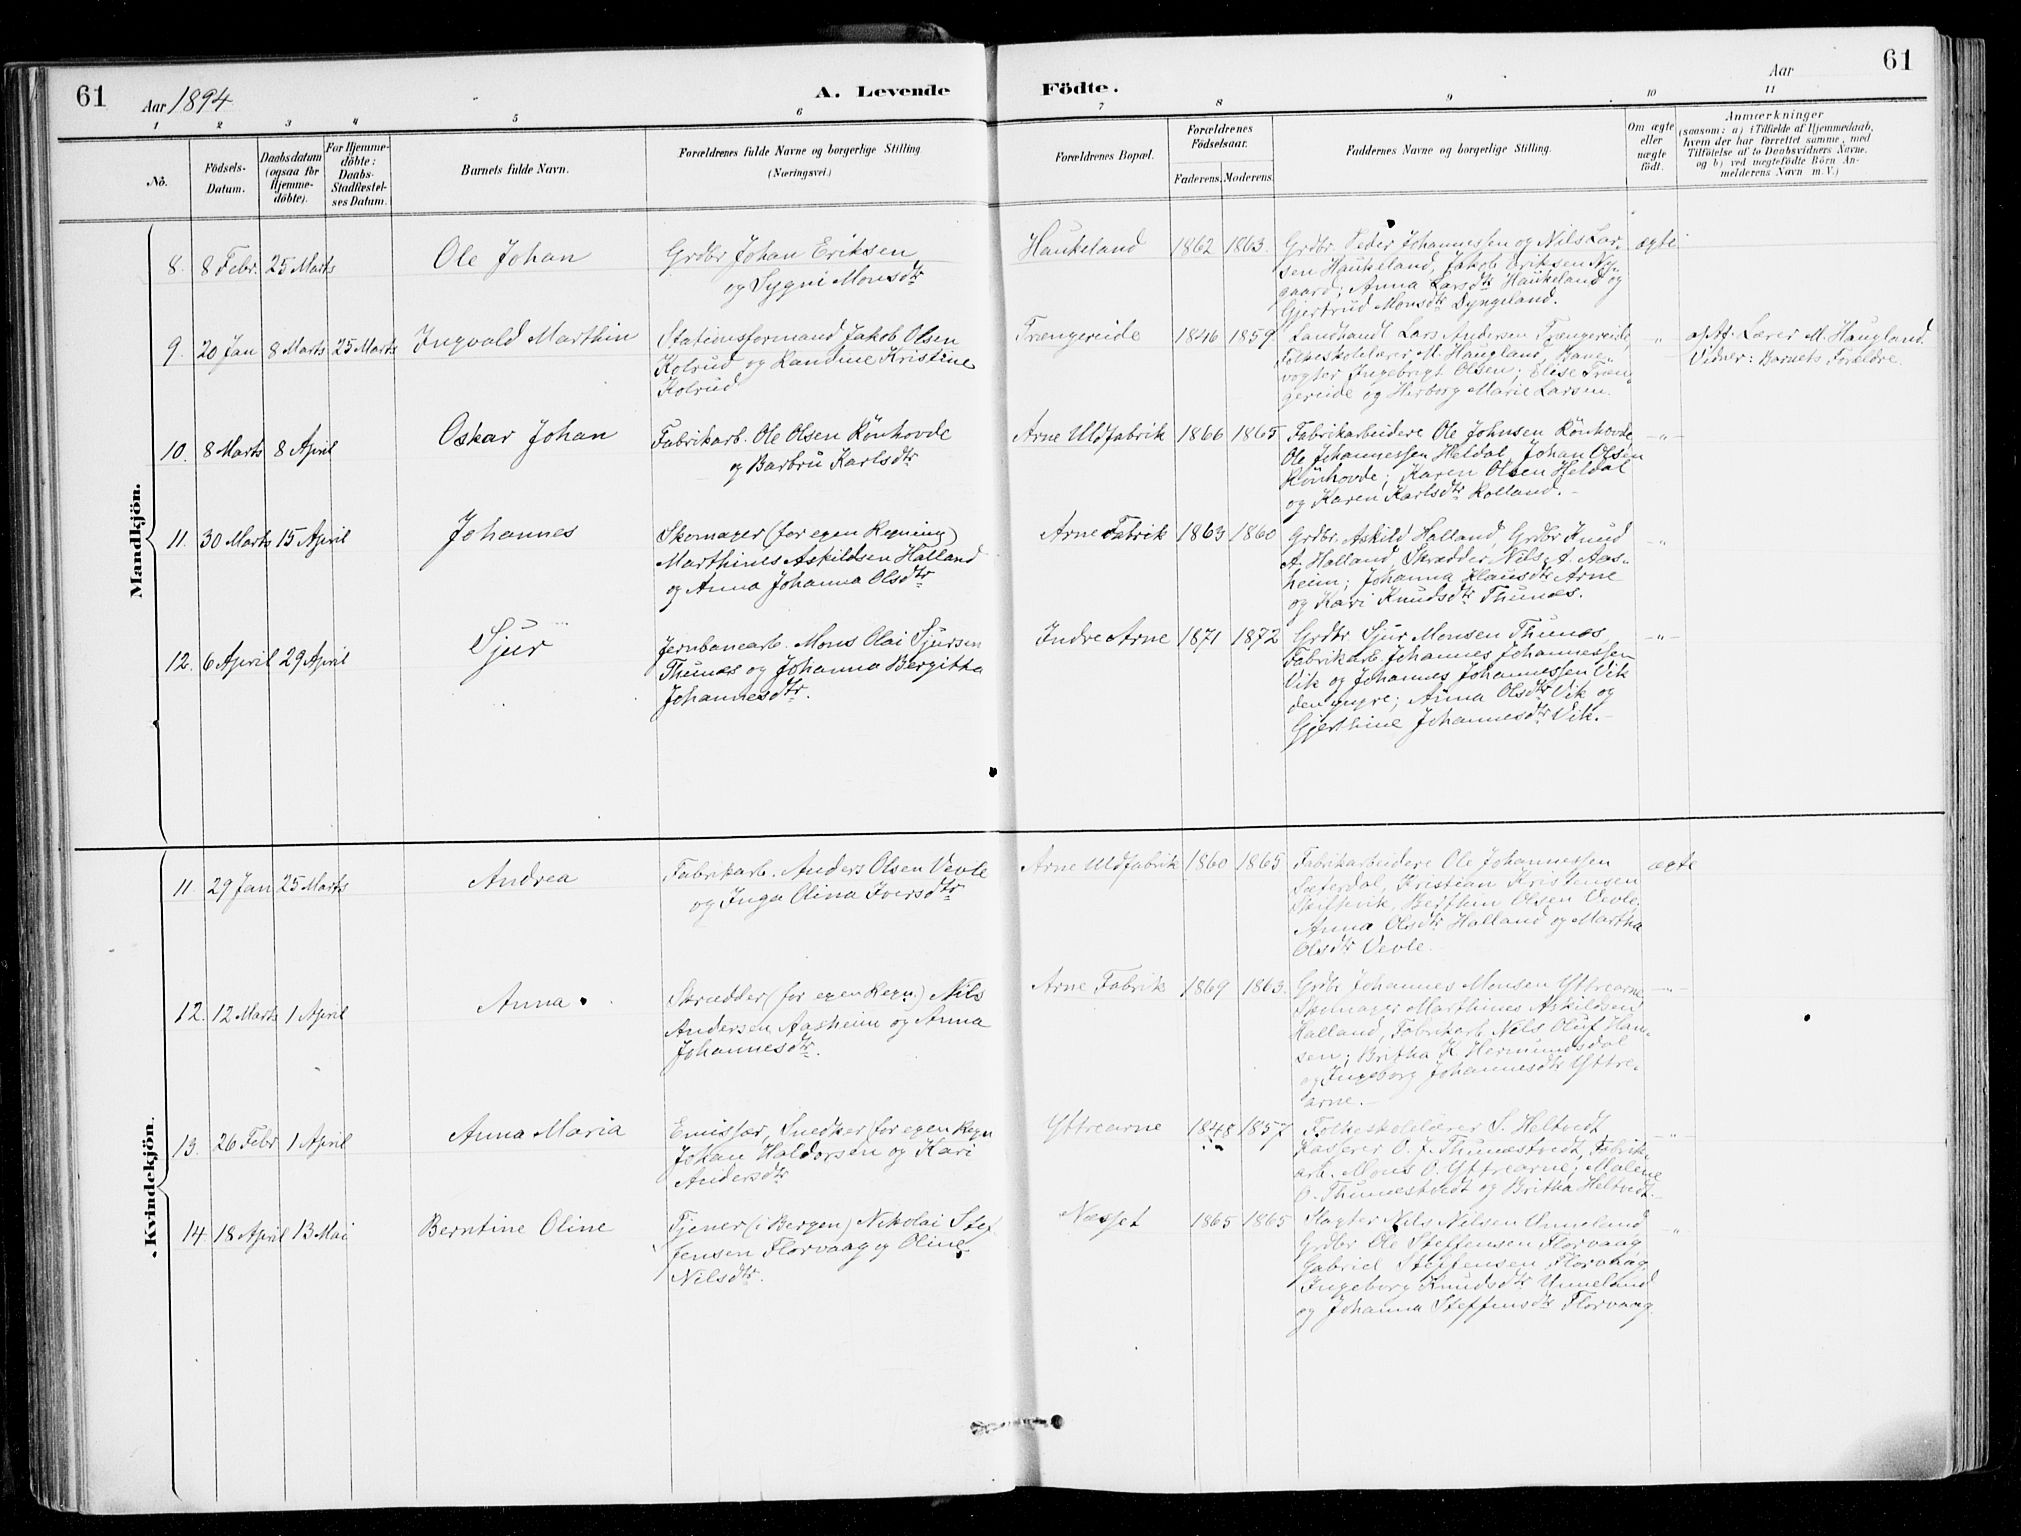 61
Aar 1894
A. Levende Födte.
Aar
61
1 2 3 4 5 6 7 8 9 10 11
No.
Födsels-Datum.
Daabsdatum (ogsaa for Hjemme-döbte).
For Hjemme-döbte: Daabs-Stadfæstel-ses Datum.
Barnets fulde Navn.
Forældrenes fulde Navne og borgerlige Stilling
(Næringsvei.)
Forældrenes Bopæl.
Forældrenes Födselsaar.
Faderens. Moderens.
Faddernes Navne og borgerlige Stilling.
Om ægte eller uægte födt.
Anmærkninger
(saasom: a) i Tilfælde af Hjemmedaab,
hvem der har forrettet samme, med
Tilföielse af to Daabsvidners Navne.
og b) ved uægtefödte Börn An-
melderens Navn m. V.)
Mandkjön.
8. 8 Febr. 25 Marts Ole Johan
Grdbr Johan Eriksen
og Sygni Monsdtr
Haukeland 1862 1863.
Grdbr. Peder Johannessen og Nils Lar-
sen Haukeland, Jakob Eriksen Ny-
gaard; Anna Larsdtr Haukeland og
Gjertrud Monsdtr Dyngeland.
ægte
9. 20 Jan 8 Marts 25 Marts Ingvald Marthin
Stationsformand Jakob Olsen
Kolrud og Randine Kristine
Kolrud
Trængereide 1846 1859
Landhandl Lars Andersen Trængereide
Folkeskolelærer M. Haugland, Bane-
vogter Ingebrigt Olsen; Elise Træn-
gereide og Herborg Marie Larsen.
-"-
a) Af Lærer M. Haugland.
Vidner: Barnets Forældre.
10. 8 Marts 8 April Oskar Johan
Fabrikarb. Ole Olsen Rönhovde
og Barbru Karlsdtr
Arne Uldfabrik 1866 1865
Fabrikarbeidere Ole Johnsen Rönhovde,
Ole Johannessen Heldal, Johan Olsen
Rönhovde; Karen Olsen Heldal
og Karen Karlsdtr Rolland.-
-"-
11. 30 Marts 15 April Johannes
Skomager (for egen Regning)
Marthines Askildsen Halland
og Anna Johanna Olsdtr
Arne Fabrik 1863 1860
Grdbr. Askild Halland, Grdbr Knud
A. Halland, Skrædder Nils A. Aas-
heim; Johanna Klausdtr Arne
og Kari Knudsdtr Thunes.
-"-
12. 6 April 29 April Sjur
Jernbanearb. Mons Olai Sjursen
Thunes og Johanna Bergitha
Johannesdtr.
Indre Arne 1871 1872
Grdbr Sjur Monsen Thunes,
Fabrikarb. Johannes Johannessen
Vik og Johannes Johannessen Vik
den yngre; Anna Olsdtr Vik og
Gjerthine Johannesdtr Vik.-
-"-
Kvindekjön.
11. 29 Jan 25 Marts Andrea
Fabrikarb. Anders Olsen Vevle
og Inga Olina Iversdtr
Arne Uldfabrik 1860 1865
Fabrikarbeidere Ole Johannessen
Sæterdal, Kristian Kristensen
Skiftevik, Berthin Olsen Vevle,
Anna Olsdtr Halland og Martha
Olsdtr Vevle.-
ægte
12. 12 Marts 1 April Anna
Skrædder (for egen Regn.) Nils
Andersen Aasheim og Anna
Johannesdtr.
Arne Fabrik 1869 1863.
Grdbr Johannes Monsen Yttrearne,
Skomager Marthines Askildsen
Halland, Fabrikarb. Nils Oluf Han-
sen; Britha K. Hermundsdal
og Ingeborg Johannesdtr Yttre-
arne.-
-"-
13. 26 Febr 1 April Anna Maria
Emissær, Snedker (for egen Regn
Johan Haldorsen og Kari
Andersdtr
Yttrearne 1848 1857
Folkeskolelærer S. Heltvedt
Kasserer O. J. Thunestvedt, Fabrik-
arb. Mons O. Yttrearne; Malene
O. Thunestvedt og Britha Heltvedt.
-"-
14. 18 April 13 Mai Berntine Oline
Tjener (i Bergen) Nikolai Stef
fensen Florvaag og Oline
Nilsdtr.
Næsset 1865 1865
Slagter Nils Nilsen Unneland
Grdbr Ole Steffensen Florvaag
Gabriel Steffensen Florvaag
Ingeborg Knudsdtr Unneland
og Johanna Steffensdtr Florvaag
-"-